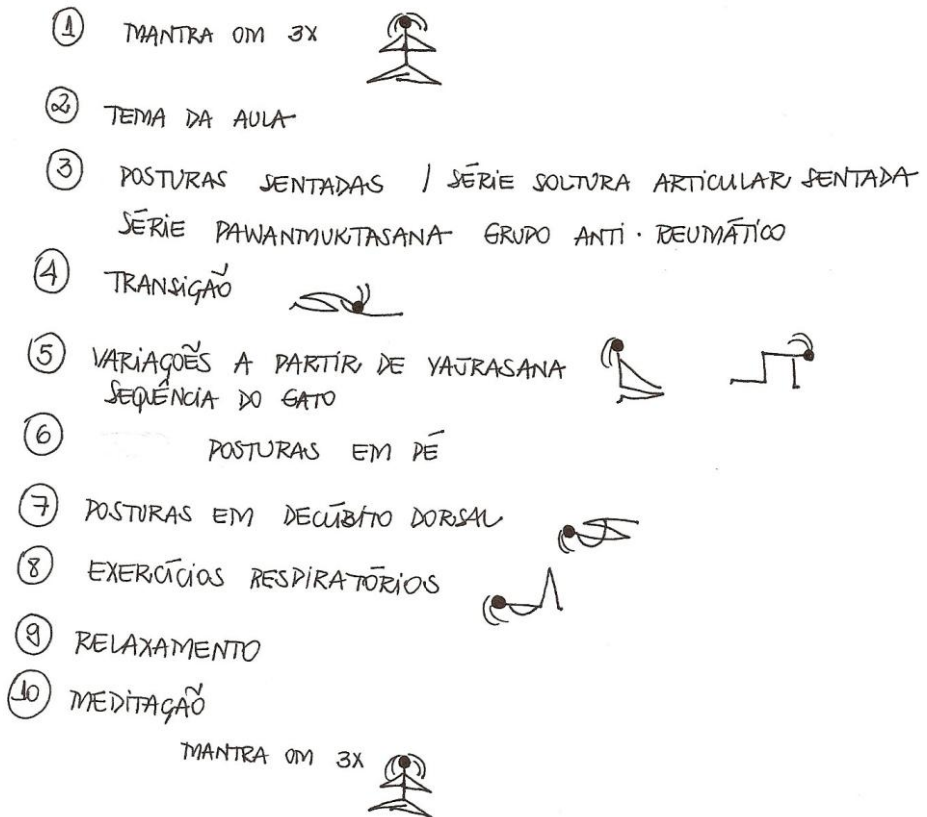 1 MANTRA OM 3X
2 TEMA DA AULA
3 POSTURAS SENTADAS / SÉRIE SOLTURA ARTICULAR SENTADA
SÉRIE PAWANMUKTASANA GRUPO ANTI·REUMÁTICO
4 TRANSIÇÃO
5 VARIAÇÕES A PARTIR DE VAJRASANA
SEQUÊNCIA DO GATO
6 POSTURAS EM PÉ
7 POSTURAS EM DECÚBITO DORSAL
8 EXERCÍCIOS RESPIRATÓRIOS
9 RELAXAMENTO
10 MEDITAÇÃO
MANTRA OM 3X